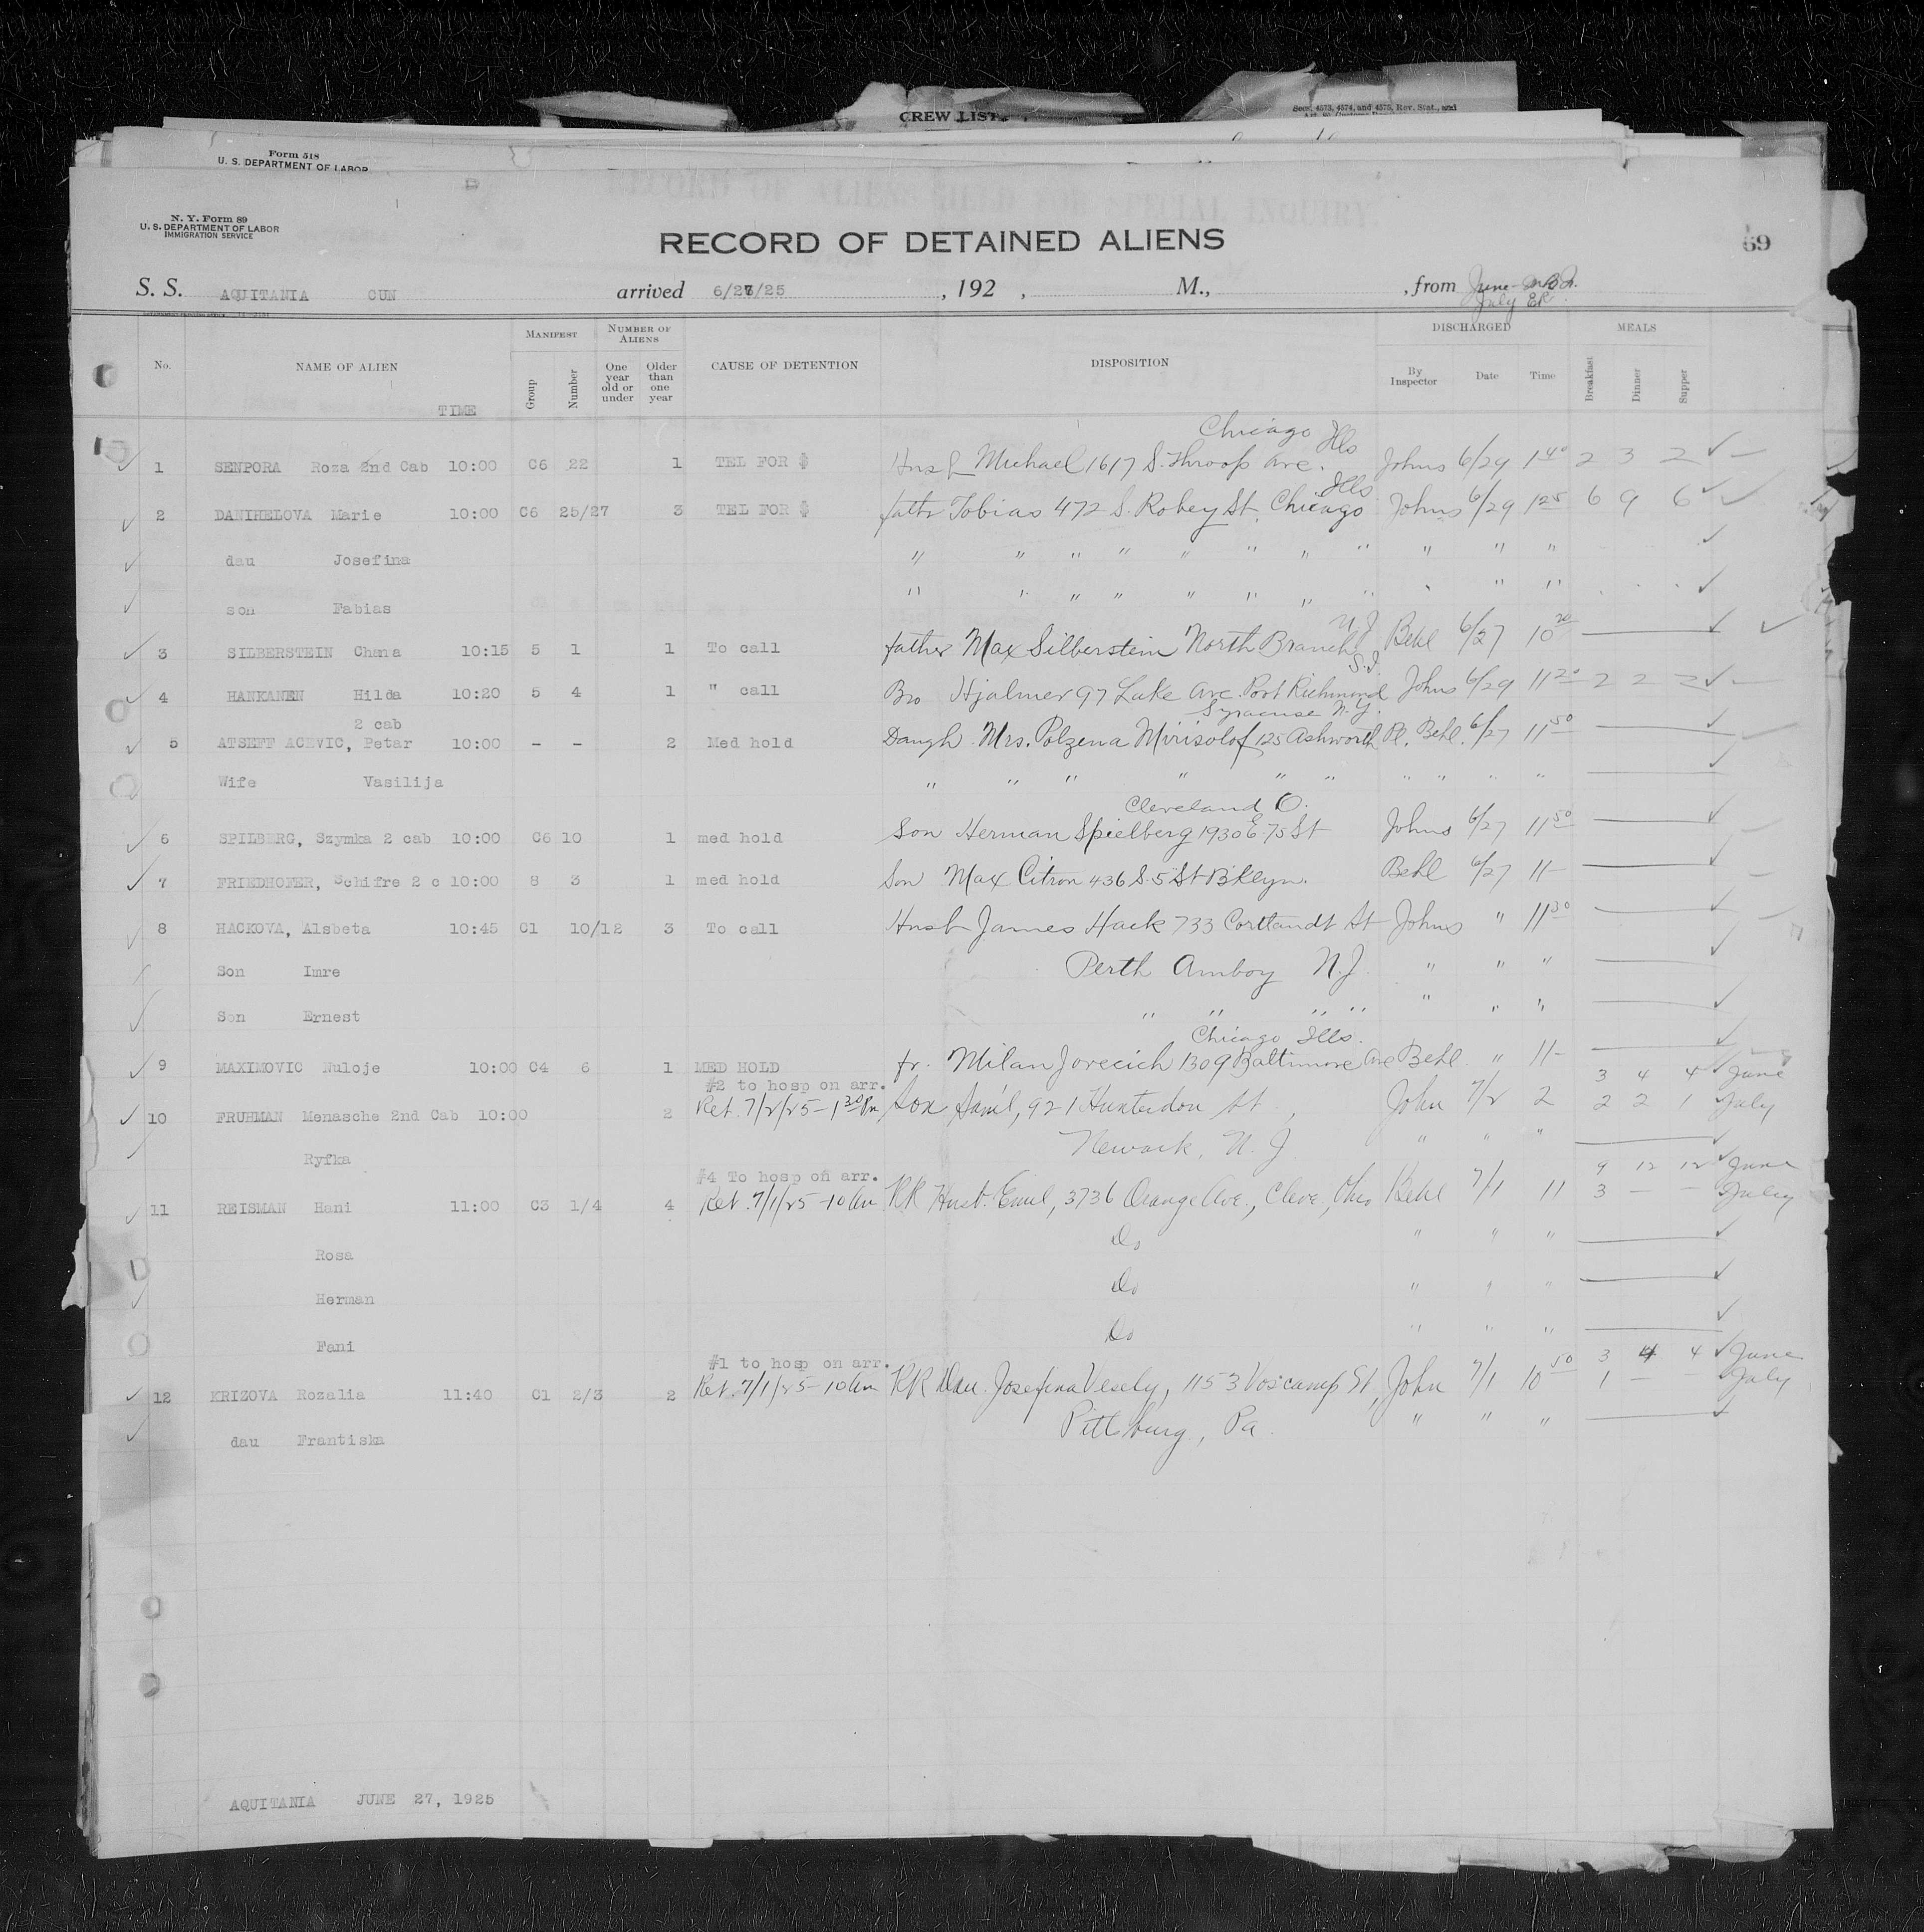 CREW LIST
Secs. 4573, 4574, and 4575, Rev. Stat., and
Form 518
U. S. DEPARTMENT OF LABOR
RECORD OF ALIENS HELD FOR SPECIAL INQUIRY
N. Y. Form 89
U. S. DEPARTMENT OF LABOR
IMMIGRATION SERVICE
RECORD OF DETAINED ALIENS
69
S. S. AQUITANIA CUN arrived 6/27/25, 192 , M., , from June-
July ER
No. NAME OF ALIEN TIME MANIFEST Group Number NUMBER OF ALIENS One year old or under Older than one year CAUSE OF DETENTION DISPOSITION DISCHARGED By Inspector Date Time MEALS Breakfast Dinner Supper
Chicago Ills
1 SENPORA Roza 2nd Cab 10:00 C6 22 1 TEL FOR $ Husb Michael 1617 S. Throop Ave. Johns 6/29 1 40 2 3 2 ✓
Ills
2 DANIHELOVA Marie 10:00 C6 25/27 3 TEL FOR $ fathr Tobias 472 S. Robey St. Chicago Johns 6/29 1 25 6 9 6 ✓
dau Josefina " " " " " " " " " " " ✓
son Fabias " " " " " " " " " " ✓
N.J
3 SILBERSTEIN Chana 10:15 5 1 1 To call father Max Silberstein North Branch Behl 6/27 10 20 — ✓
S.I.
4 HANKANEN Hilda 10:20 5 4 1 " call Bro Hjalmer 97 Lake Ave. Port Richmond Johns 6/29 11 20 2 2 2 ✓
2 cab Syracuse N.Y.
5 ATSEFF ACEVIC, Petar 10:00 - - 2 Med hold Daugh. Mrs. Polzena Mirisolof, 125 Ashworth Pl. Behl. 6/27 11 50 — ✓
Wife Vasilija " " " " " " " " " " — ✓
Cleveland O.
6 SPILBERG, Szymka 2 cab 10:00 C6 10 1 med hold Son Herman Spielberg 1930 E. 75 St Johns 6/27 11 50 — ✓
7 FRIEDHOFER, Schifre 2 c 10:00 8 3 1 med hold Son Max Citron 436 S. 5 St Bklyn. Behl 6/27 11- — ✓
8 HACKOVA, Alsbeta 10:45 C1 10/12 3 To call Husb James Hack 733 Cortlandt St Johns " 11 30 — ✓
Son Imre Perth Amboy N.J. " " " — ✓
Son Ernest " " " " " " " — ✓
Chicago Ills.
9 MAXIMOVIC Nuloje 10:00 C4 6 1 MED HOLD fr. Milan Jorecich 1309 Baltimore Ave Behl " 11- — ✓
#2 to hosp on arr. 3 4 4 ✓ June
10 FRUHMAN Menasche 2nd Cab 10:00 2 Ret. 7/2/25-1 30 Pm Son Saml, 921 Hunterdon St, John 7/2 2 2 2 1 July
Ryfka Newark, N.J. " " " — ✓
#4 To hosp on arr. 9 12 12 ✓ June
11 REISMAN Hani 11:00 C3 1/4 4 Ret. 7/1/25-10 Am RR Husb. Emil, 3736 Orange Ave., Cleve., Ohio Behl 7/1 11 3 — — July
Rosa Do " " " — ✓
Herman Do " " " — ✓
Fani Do " " " — ✓
#1 to hosp on arr. 3 4 4 ✓ June
12 KRIZOVA Rozalia 11:40 C1 2/3 2 Ret. 7/1/25-10 Am RR Dau. Josefina Vesely, 1153 Voscamp St., John 7/1 10 50 1 — — July
dau Frantiska Pittsburg, Pa. " " " — ✓
AQUITANIA JUNE 27, 1925